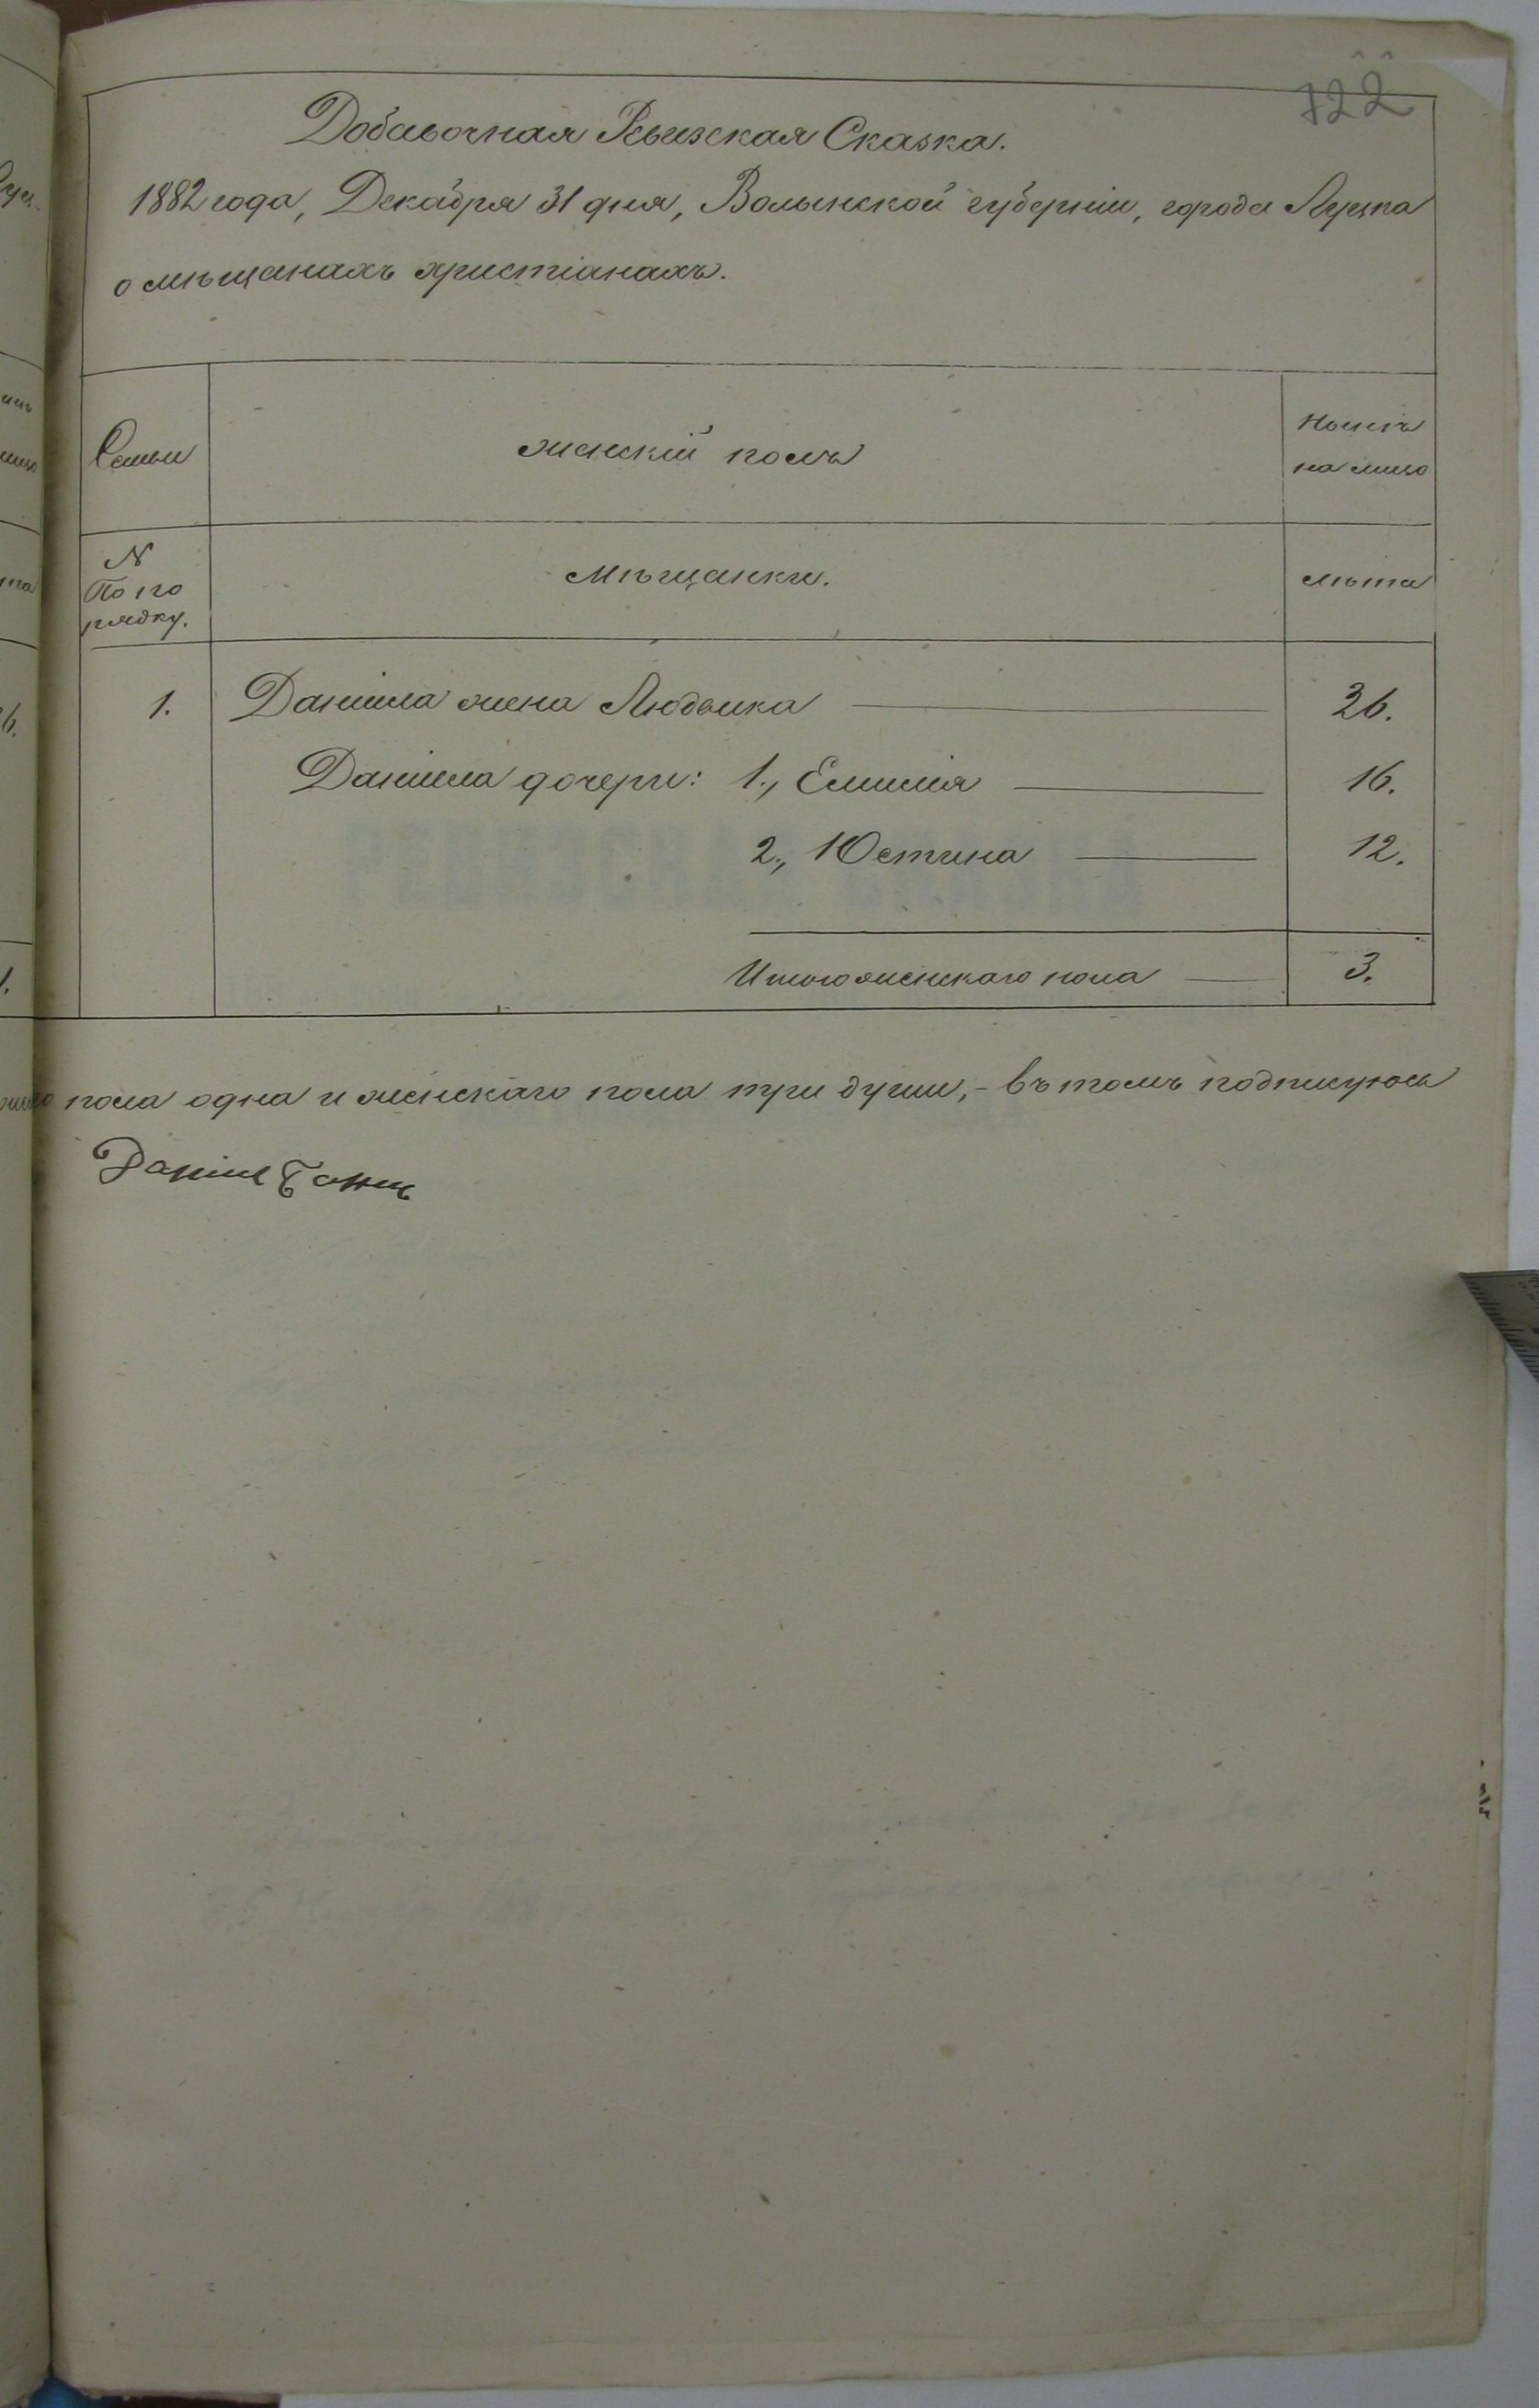 722
Добавочная Ревизская Сказка.
1882 года, Декабря 31 дня, Волынской губерніи, города Луцка
о мѣщанахъ христіанахъ.
Семьи
женскій полъ
Нынѣ
на лицо
N
По по
рядку.
Мѣщанки.
лѣта
1. Даніила жена Людвика 36.
Даніила дочери: 1., Емилія 16.
2., Юстина 12.
Итого женскаго пола 3.
пола одна и женскаго пола три души, - въ томъ подписуюсь
Даніил